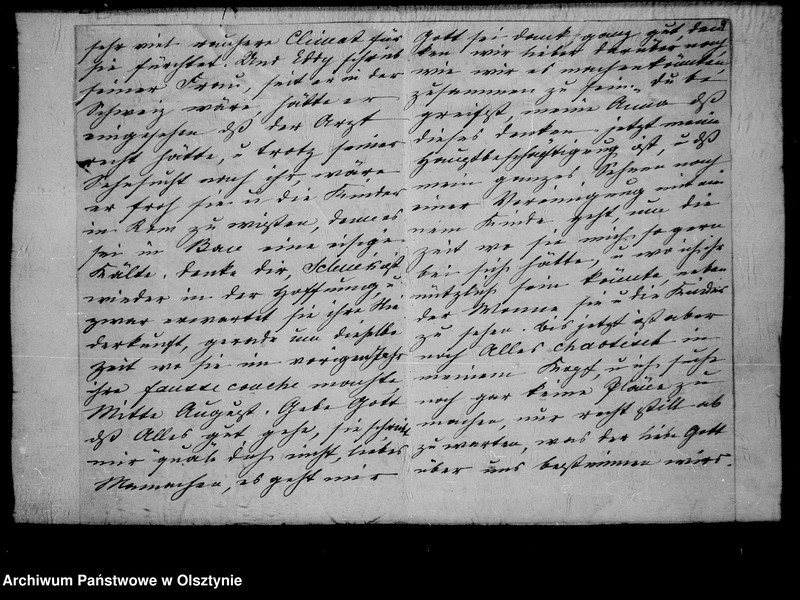 sehr viel rauhere Climat für
sie fürchtet. Und Eddy schrieb
seiner Frau, seit er in der
Schweiz wäre, hätte er
eingesehen dß der Arzt
recht hätte, u trotz seiner
Sehnsucht nach ihr, wäre
er froh sie u die Kinder
in Rom zu wissen, denn es
sei in Bern eine eisige
Kälte. denke dir, ist
wieder in der Hoffnung, u
zwar erwartet sie ihre Nie
derkunft, gerade um dieselbe
Zeit wo sie im vorigen Jahr
ihre fausse couche machte
Mitte August. Gebe Gott
dß Alles gut gehe, sie schreibt
mir "quäle dich nicht, liebes
Mamachen, es geht mir
Gott sei dank ganz gut, den
ken wir lieber darüber nach
wie wir es machen könnten
zusammen zu sein." du be
greifst, meine Anna dß
dieses denken jetzt meine
Hauptbeschäftigung ist, u dß
mein ganzes Sehnen nach
einer Vereinigung mit mei
nem Kinde geht, um die
Zeit wo sie mich so gern
bei sich hätte, u wo ich ihr
nützlich sein könnte, neben
der Wonne sie u die Kinder
zu sehen. Bis jetzt ist aber
noch Alles chaotisch in
meinem Kopf, u ich suche
noch gar keine Pläne zu
machen, nur recht still ab
zu warten, was der liebe Gott
über uns bestimmen wird.
Archiwum Państwowe w Olsztynie